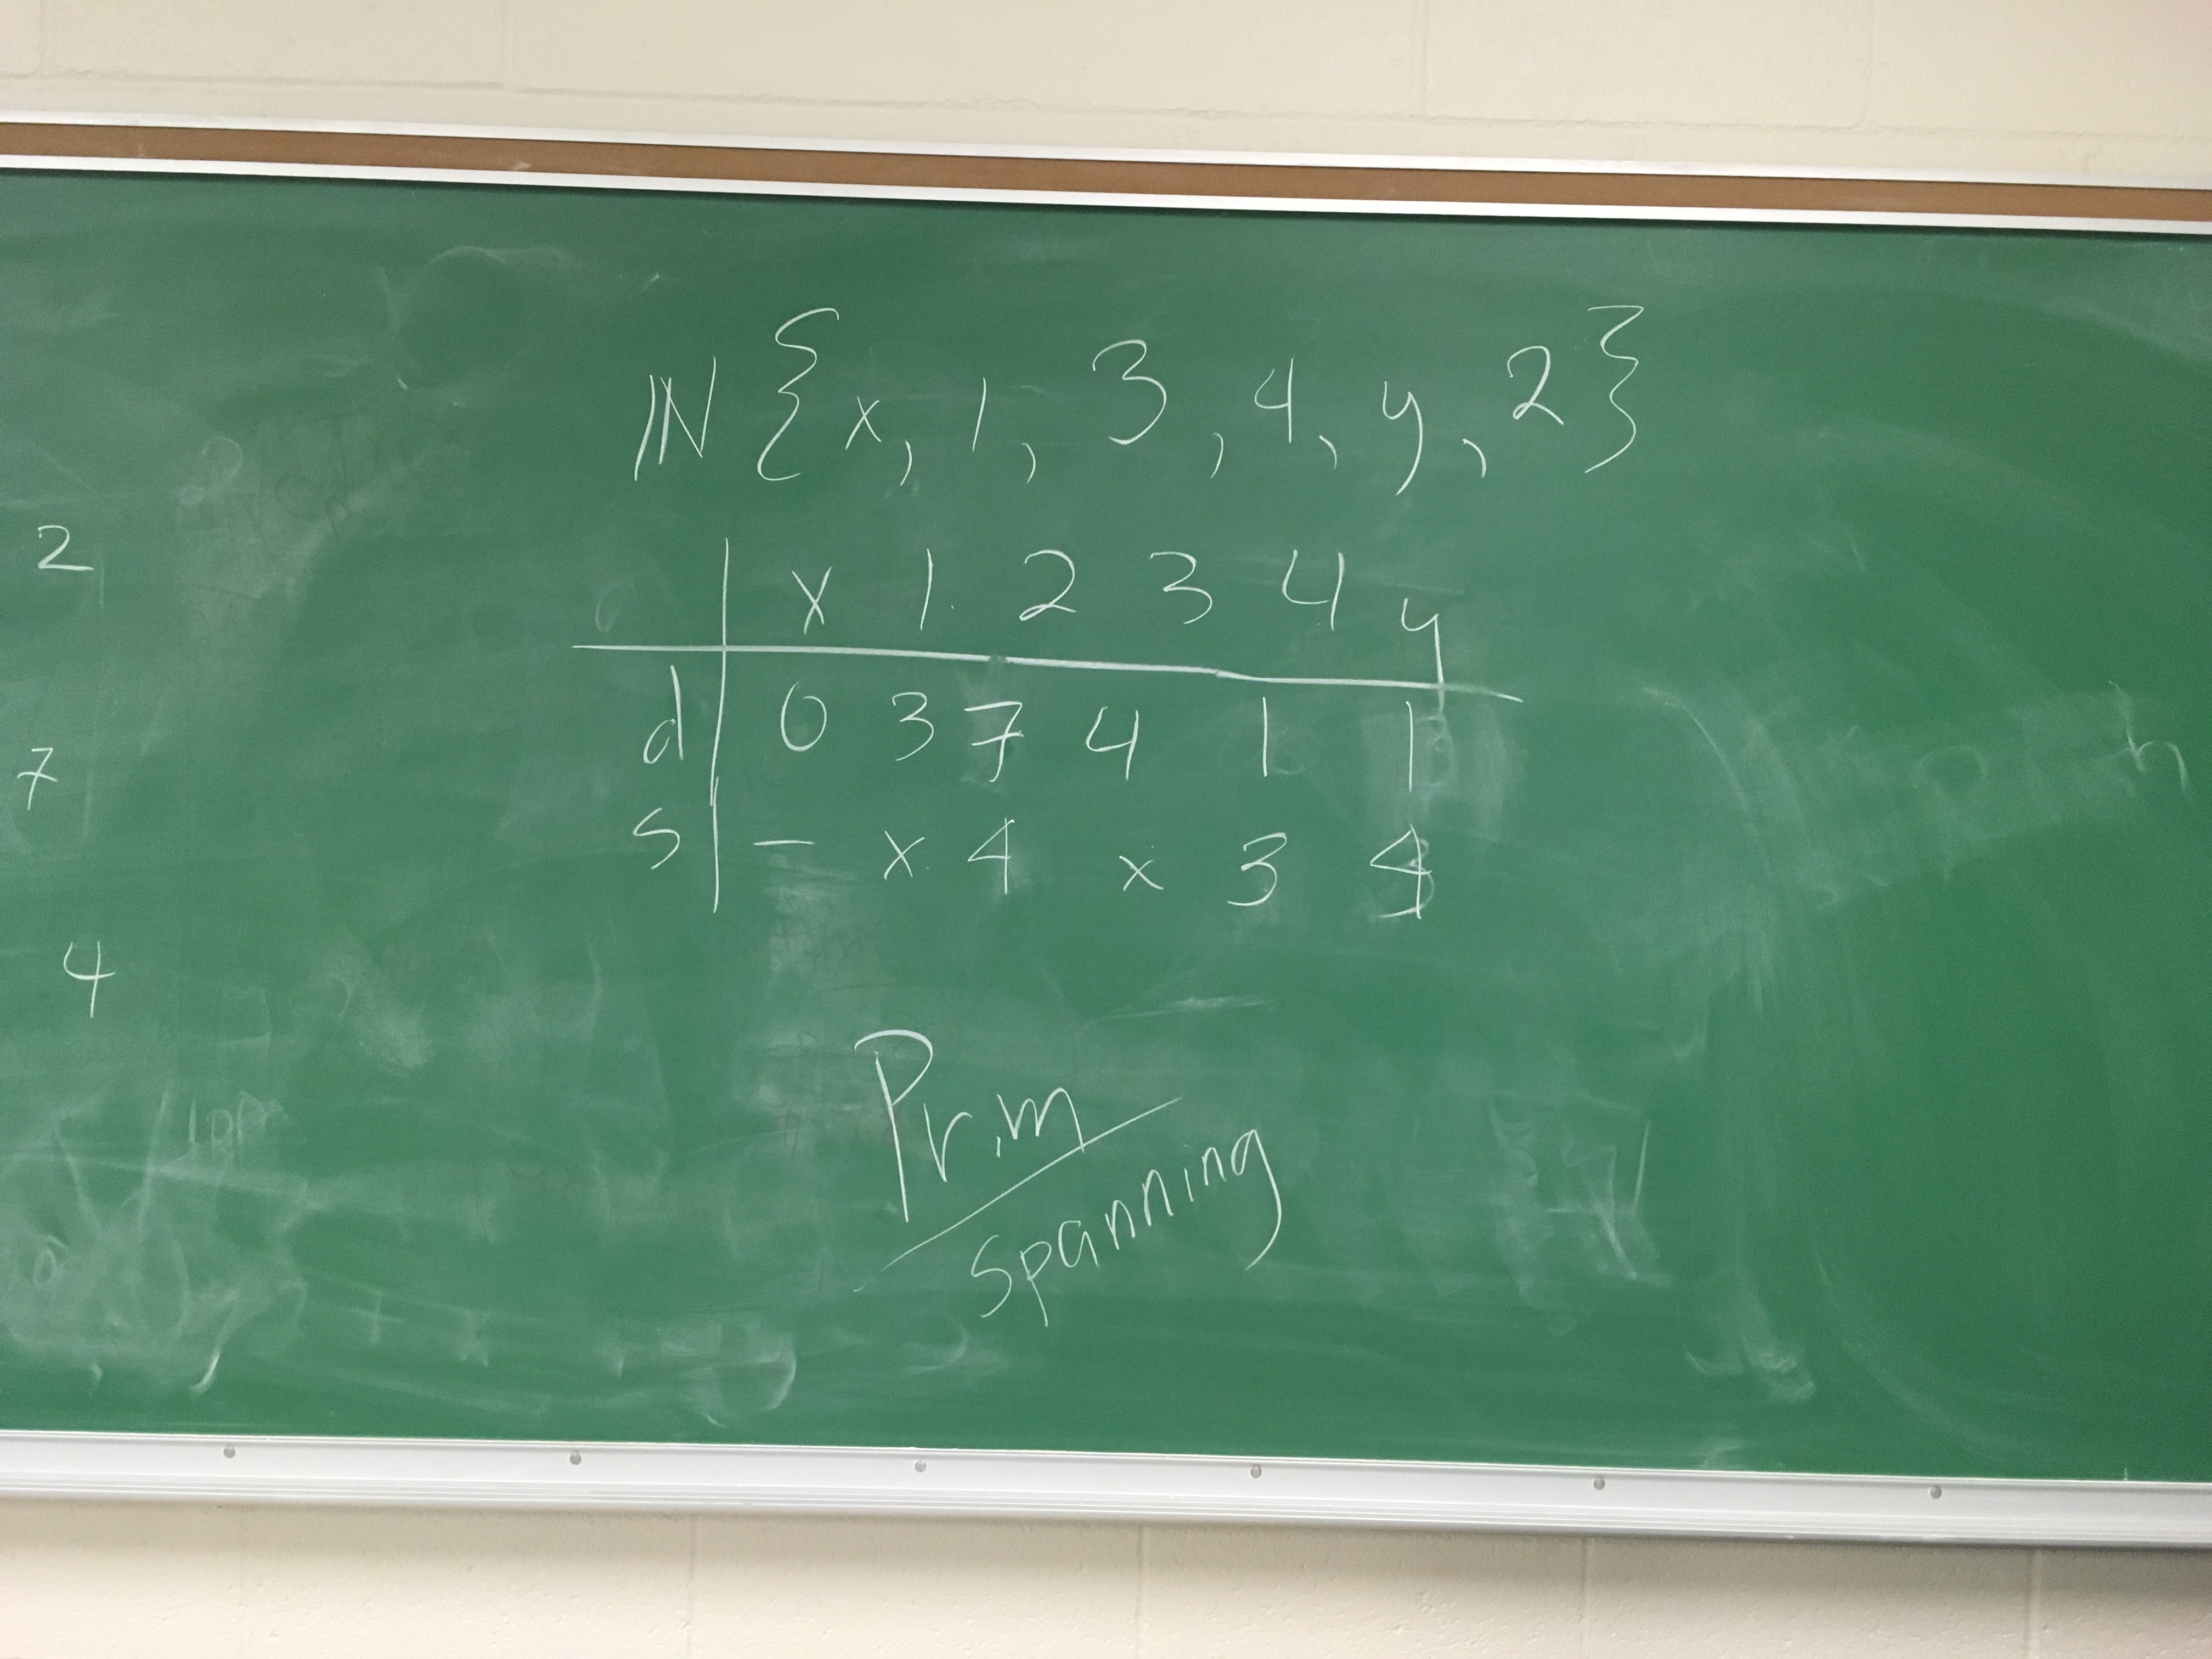 IN {x, 1, 3, 4, y, 2}
x 1 2 3 4 y
d 0 3 7 4 1 1
s – x 4 x 3 4
Prim
spanning
2
7
4
h